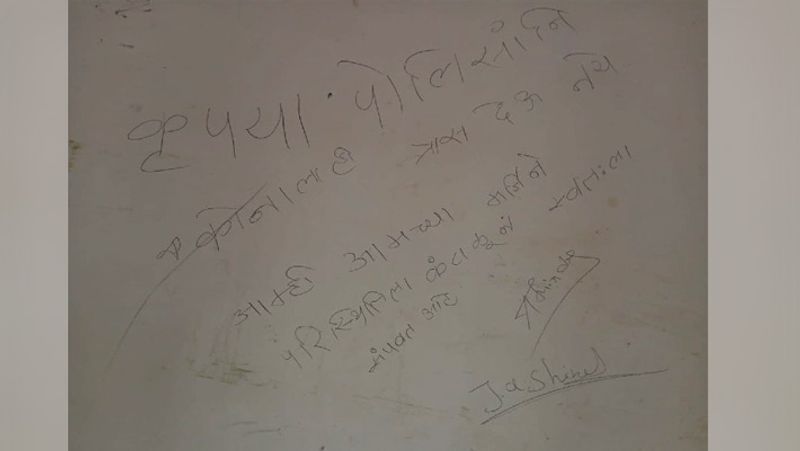 कृपया पोलिसांनि
कोनालाही त्रास देऊ नये
आम्ही आमच्या मर्जिने
परिस्थितिला कंटाळून स्वतःला
संपवत आहे
Shinde
J.d Shinde